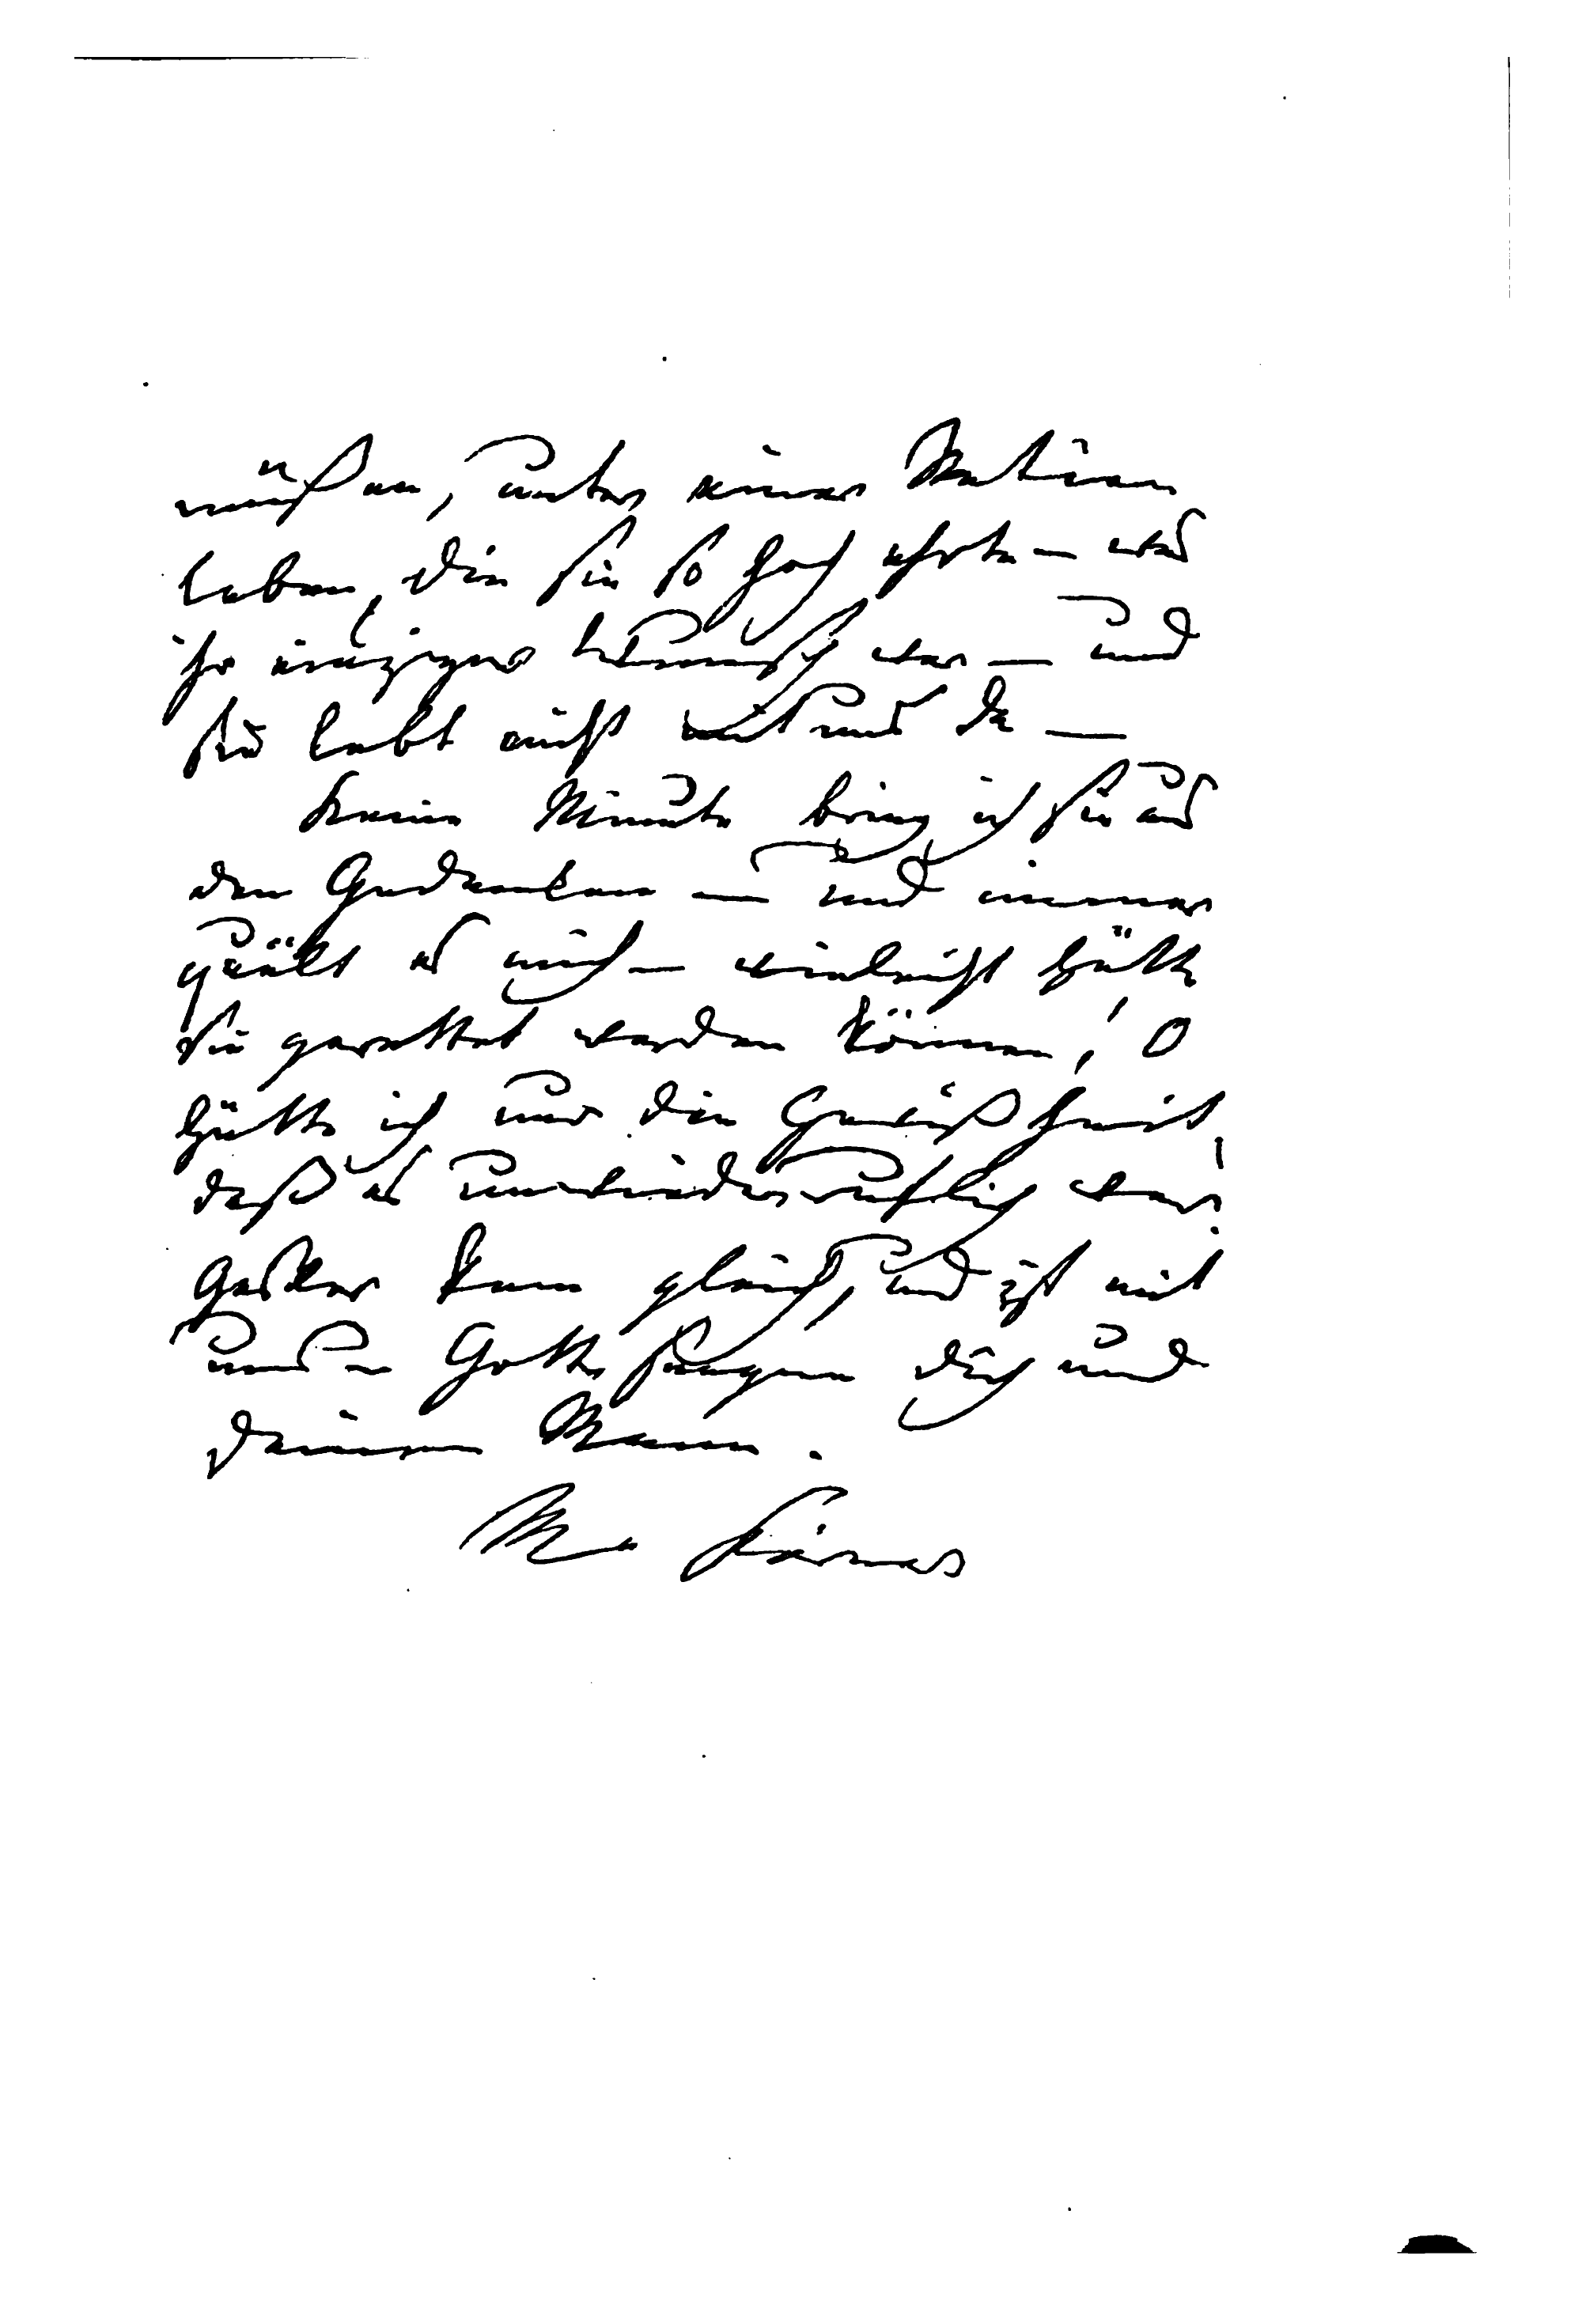 müßen, unter einer Nation
leben, die sie so hoch ehrte – was
ihr einziger Wunsch war – und
sie lebt nicht mit uns da –
Keine Minute bring ich sie aus
den Gedanken – und immer
quält es mich – vieleicht hätte
sie gerettet werden können! O
hätte ich nur die Gewißheit
daß es unwiederruflich war!
kam gleich, und ist mit
uns – Gott segne dich und
deinen Mann.